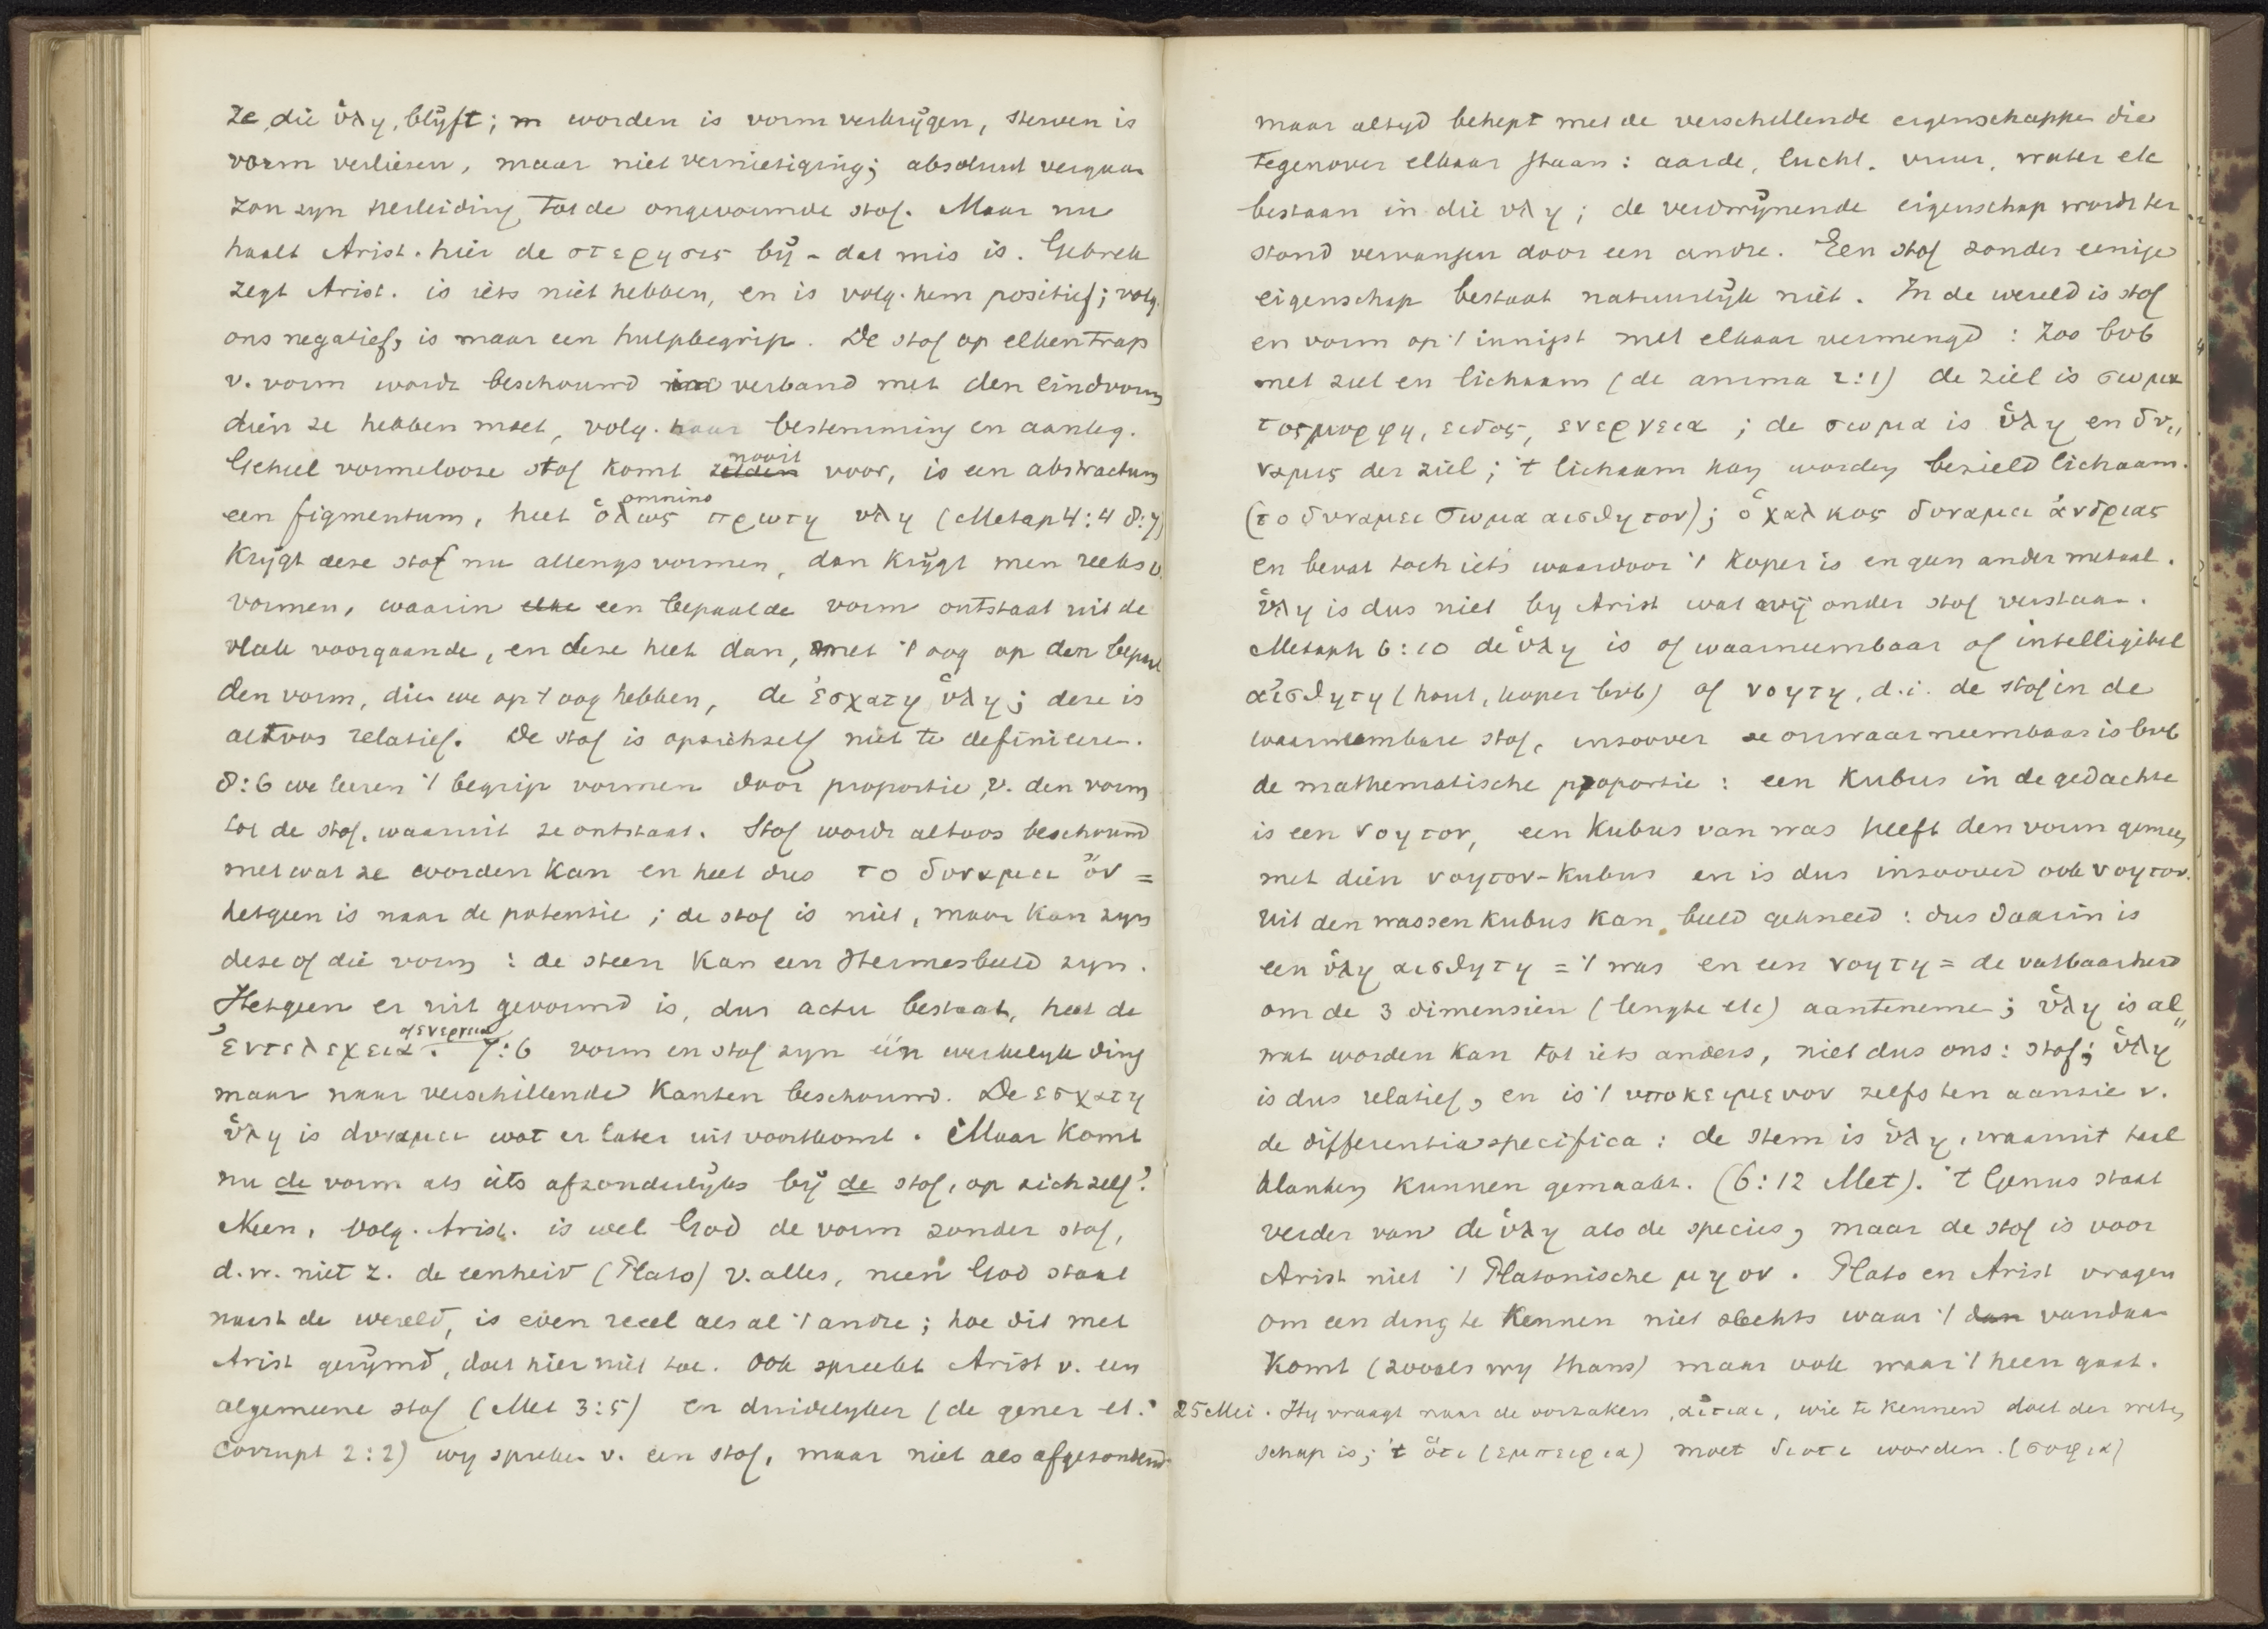 ze, die ὑλη, blijft; m worden is vorm verkrijgen, sterven is
vorm verliezen, maar niet vernietiging; absoluut vergaan
zou zyn herleiding tot de ongevormde stof. Maar nu
haalt Arist. hier de στερησις bij - dat mis is. Gebrek
zegt Arist. is iets niet hebben, en is volg. hem positief; volg.
ons negatief, is maar een hulpbegrip. De stof op elken trap
v. vorm wordt beschouwd in verband met den eindvorm
dien ze hebben moet, volg. haar bestemming en aanleg.
Geheel vormelooze stof komt zelden nooit voor, is een abstractum
een figmentum, heet ὁλως omnino πρωτη υλη (Metap 4:4 8:7)
Krijgt deze stof nu allengs vormen, dan krijgt men reeks v.
vormen, waarin elke een bepaalde vorm ontstaat uit de
vlak voorgaande, en deze heet dan, met 't oog op den bepaal
den vorm, dien we op 't oog hebben, de ἐσχατη ὑλη; deze is
altoos relatief. De stof is opzichzelf niet te definieeren.
8:6 we leeren 't begrip vormen door proportie v. den vorm
tot de stof, waaruit ze ontstaat. Stof wordt altoos beschouwd
met wat ze worden kan en heet dus το δυναμει ὀν =
hetgeen is naar de potentie; de stof is niet, maar kan zyn
deze of die vorm: de steen kan een Hermesbeeld zyn.
Hetgeen er uit gevormd is, dus actu bestaat, heet de
ἐντελεχεια of ενεργεια. 7:6 vorm en stof zyn één werkelyk ding
maar naar verschillende kanten beschouwd. De εσχατη
ὑλη is δυναμει wat er later uit voortkomt. Maar komt
nu de vorm als iets afzonderlijks bij de stof, op zich zelf?
Neen, volg. Arist. is wel God de vorm zonder stof,
d.w. niet z. de eenheid (Plato) v. alles, neen God staat
naast de wereld, is even reeel als al 't andre; hoe dit met
Arist gerijmd, doet hier niet toe. Ook spreekt Arist v. een
algemeene stof (Met 3:5) en duidelyker (de gener et.
Corrupt 2:2) wy spreken v. een stof, maar niet als afgezonderd
maar altyd behept met de verschillende eigenschappen die
tegenover elkaar staan: aarde, lucht, vuur, water etc
bestaan in die υλη; de verdwijnende eigenschap wordt ter
stond vervangen door een andre. Een stof zonder eenige
eigenschap bestaat natuurlijk niet. In de wereld is stof
en vorm op 't innigst met elkaar vermengd: zoo bvb
met ziel en lichaam (de anima 2:1) de ziel is σωμα
τος μορφη, ειδος, ενεργεια; de σωμα is ὑλη en δυ„
ναμις der ziel; 't lichaam kan worden bezield lichaam.
(το δυναμει σωμα αισθητον); ὁ χαλκος δυναμει ἀνδριας
en bevat toch iets waardoor 't koper is en geen ander metaal.
ὑλη is dus niet by Arist wat wij onder stof verstaan.
Metaph 6:10 de ὑλη is of waarneembaar of intelligibel
αἰσθητη (hout, koper bvb) of νοητη, d.i. de stof in de
waarneembare stof, inzoover ze onwaarneembaar is bvb
de mathematische proportie: een kubus in de gedachte
is een νοητον, een kubus van was heeft den vorm gemeen
met dien νοητον-kubus en is dus inzoover ook νοητον.
Uit den wassen kubus kan beeld gekneed: dus daarin is
een ὑλη αισθητη = 't was en een νοητη = de vatbaarheid
om de 3 dimensien (lengte etc) aanteneme; ὑλη is al„
wat worden kan tot iets anders, niet dus ons: stof; ὑλη
is dus relatief, en is 't υποκειμενον zelfs ten aanzie v.
de differentia specifica: de stem is ὑλη, waaruit taal
klanken kunnen gemaakt. (6:12 Met). 't Genus staat
verder van de ὑλη als de species, maar de stof is voor
Arist niet 't Platonische μη ον. Plato en Arist vragen
om een ding te kennen niet slechts waar 't dan vandaan
komt (zooals wy thans) maar ook waar 't heen gaat.
25 Mei. Hy vraagt naar de oorzaken, αἰτιαι, wie te kennen doel der weten
schap is; 't ὁτι (εμπειρια) moet διοτι worden. (σοφια)